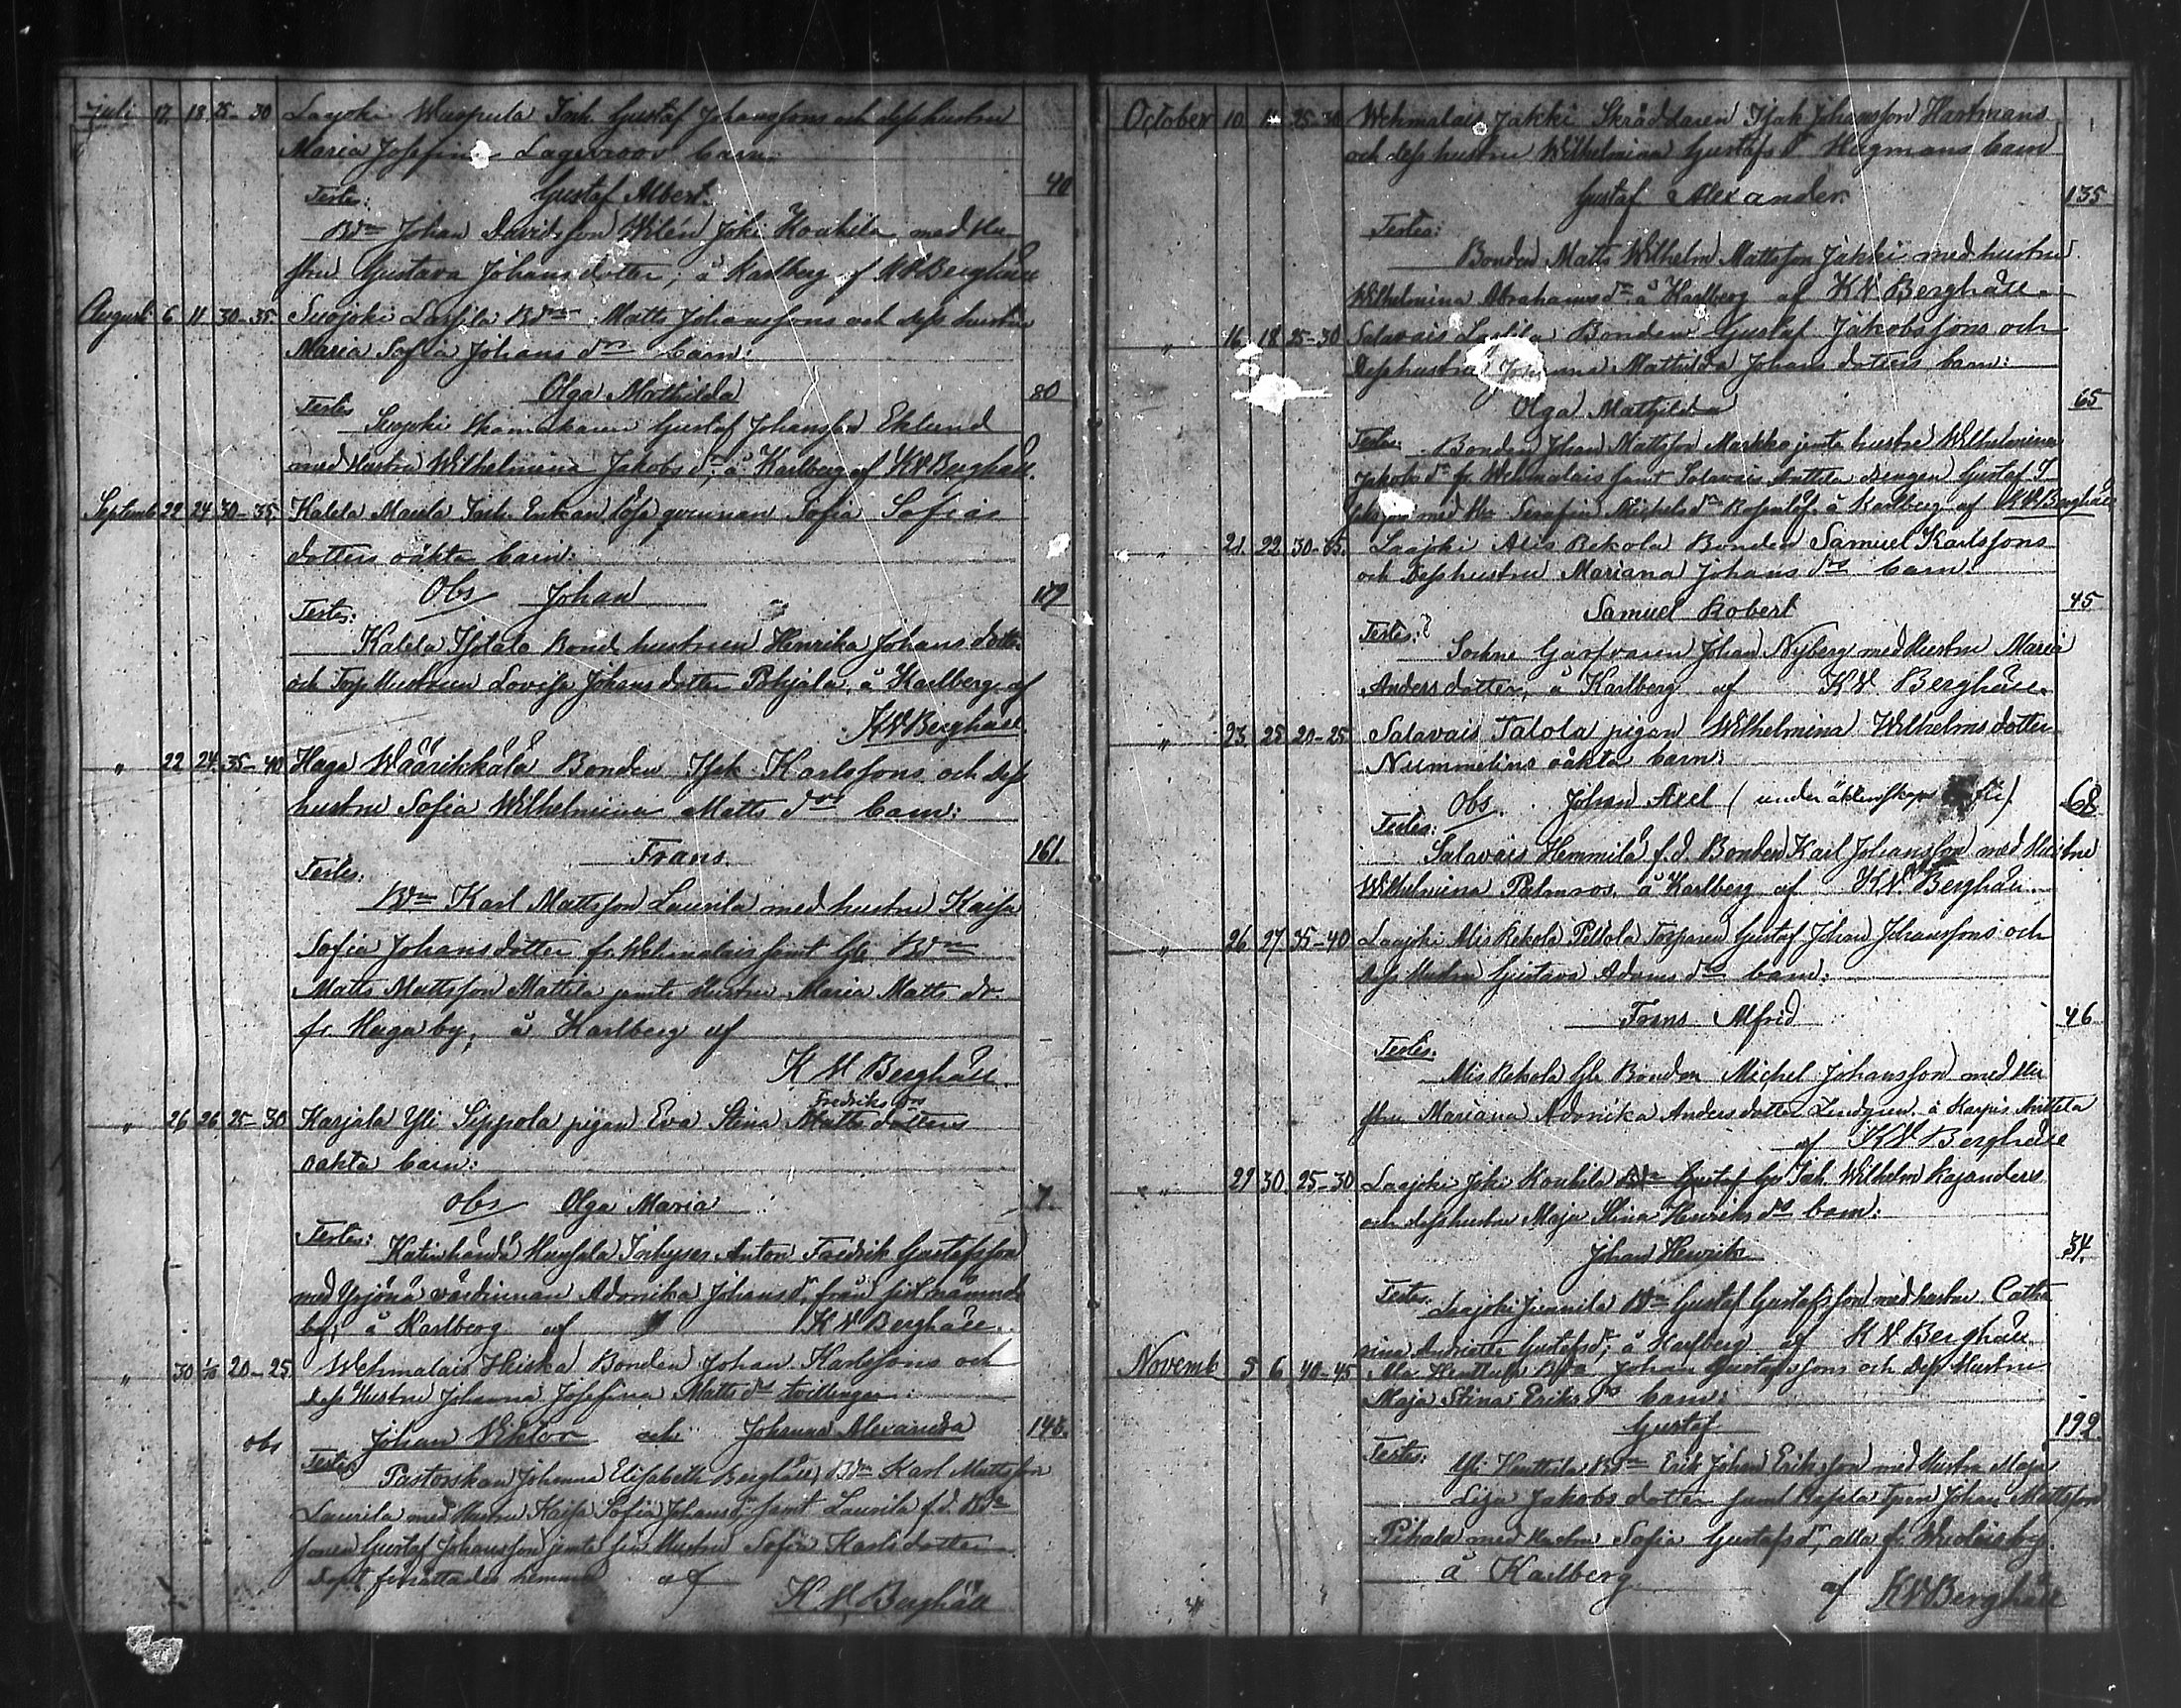 Juli 17. 18. 25-30 Laajoki Wuspula Inh. Gustaf Johanssons och dess hustru
Maria Josefina Lagerroos barn:
Gustaf Albert. 40
Testes:
Bdn Johan Davidsson Wilén Joki Koukila med Hu-
stru Gustava Johansdotter; å Karlberg af KWBerghäll
Augusti 6 11 30-35 Suojoki Lassila Bdns Matts Johanssons och dess hustru
Maria Sofia Johans drs barn:
Olga Mathilda 80
Testes
Suojoki Gustaf Johansson Eklund
med Hustru Wilhelmina Jakobs dr, å Karlberg af KWBerghäll.
Septemb 22 24 30-35 Kalela Maula Inh. Enkan lösa qvinnan Sofia Sofias
dotters oäkta barn:
Obs Johan
Testes:
Kalela Isotalo Bond hustrun Henrika Johans dotter
och Torp Hustrun Lovisa Johansdotter Pohjala, å Karlberg, af
KWBerghäll
" 22 24 35-40 Haga Wäärikkälä Bonden Isak Karlssons och dess
hustru Sofia Wilhelmina Matts drs barn:
Frans. 161.
Testes:
Bdn Karl Mattsson Laurila med hustru Kaisa
Sofia Johansdotter fr. Wehmalais samt Bdn
Matts Mattsson Mattila jemte Hustru Maria Matts dr.
fr. Haga by; å Karlberg af
K W Berghäll.
Fredriks drs
" 26 26 25-30 Karjala Yli Sippola pigan Eva Stina Matts dotters
oäkta barn:
Obs Olga Maria 7.
Testes:
Katinhäntä Hanssla Inhyses Anton Fredrik Gustafsson
med Yrjönä värdinnan Adonika Johans dr från sistnämnde
by; å Karlberg af KWBerghäll.
" 30 1/10 20-25 Wehmalais Heiska Bonden Johan Karlssons och
dess Hustru Johanna Josefina Matts drs tvillingar:
obs Johan Viktor och Johanna Alexandra 148.
Testes:
Pastorskan Johanna Elisabeth Berghäll, Bdn Karl Mattsson
Laurila med Hustru Kaisa Sofia Johans dr, samt Laurila f.d. Bdn
Gustaf Johansson jemte sin Hustru Sofia Karlsdotter
dopet förrättades hemma af
K W Berghäll
October 10. 25-30 Wehmalais Jakki Skräddaren Isak Johansson Hartmans
och dess hustru Wilhelmina Gustafs dr Hagmans barn
Gustaf Alexander. 135
Testes:
Bonden Matts Wilhelm Mattsson Jakki med hustru
Wilhelmina Abrahams dr. å Karlberg af KW Berghäll.
" 16. 18 25-30 Salavais Bonden Gustaf Jakobssons och
Dess hustru Mathilda Johans dotters barn:
Olga Mathilda 65
Testes: Bonden Johan Mattsson Markko jemte hustru Wilhelmina
Jakobs dr fr. Wehmalais samt Salavais Anttila drengen Gustaf
med Hu Serafia Michels dr å Karlberg af KWBerghäll
" 21. 22 30-35. Laajoki Alis Rekola Bonden Samuel Karlssons
och Dess hustru Mariana Johans drs barn:
Samuel Robert 45
Testes:
Sockne Garfvaren Johan Nyberg med Hustru Maria
Anders dotter, å Karlberg af KW Berghäll.
" 23. 25 20-25 Salavais Talola pigan Wilhelmina Wilhelms dotter
Nummelins oäkta barn:
Obs. Johan Axel (under äktenskaps ) 68
Testes:
Salavais Hemmilä f.d. Bonden Karl Johansson med Hustru
Wilhelmina Palmroos å Karlberg af KW Berghäll.
" 26 27 35-40 Laajoki Alis Rekola Peltola Torparen Gustaf Johan Johanssons och
dess Hustru Gustava Adams drs barn:
Frans Alfrid 46
Testes.
Alis Rekola Bonden Michel Johansson med Hu
stru Mariana Adonika Andersdotter Lindgren. å Karpis Anttila
af KW Berghäll
" 29 30. 25-30 Laajoki Joki Koukila Bdn Gustaf Inh. Wilhelm Kajanders
och dess hustru Maja Stina Henriks drs barn:
Johan Henrik 34.
Testes.
Laajoki Juanila Bdn Gustaf Gustafsson med hustru Catha
rina Andriette Gustafs dr; å Karlberg af KW Berghäll
Novemb 5 6. 40-45 Ala Henttula Bdn Johan Gustafssons och dess Hustru
Maja Stina Eriks drs barn:
Gustaf 192.
Testes:
Yli Henttula Bdn Erik Johan Eriksson med Hustru Maja
Lisa Jakobs dotter samt Johan Mattsson
Pihala med Hustru Sofia Gustafs dr, alla fr. by.
å Karlberg
af KWBerghäll